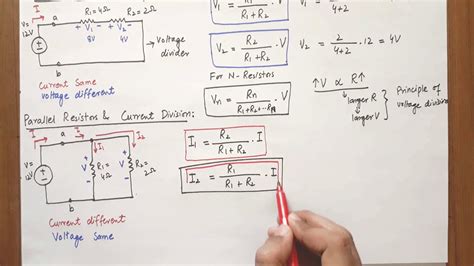 I
a
R₁=4Ω
R₂=2Ω
+ V₁ -
+ V₂ -
V=
12V
8V
4V
b
Voltage
divider
Current Same
Voltage different
R₁ + R₂
V₂ = R₂ / R₁ + R₂ . V
For N-Resistors
Vn = Rn / R₁+R₂+...Rn . V
4+2
V₂ = 2 / 4+2 . 12 = 4V
↑V ∝ R↑
larger R
larger V
Principle of
voltage division
Parallel Resistors & Current Division:
I
a
I₁
I₂
V=
12V
V
R₁=
4Ω
V
R₂=2Ω
b
Current different
Voltage Same
I₁ = R₂ / R₁ + R₂ . I
I₂ = R₁ / R₁ + R₂ . I